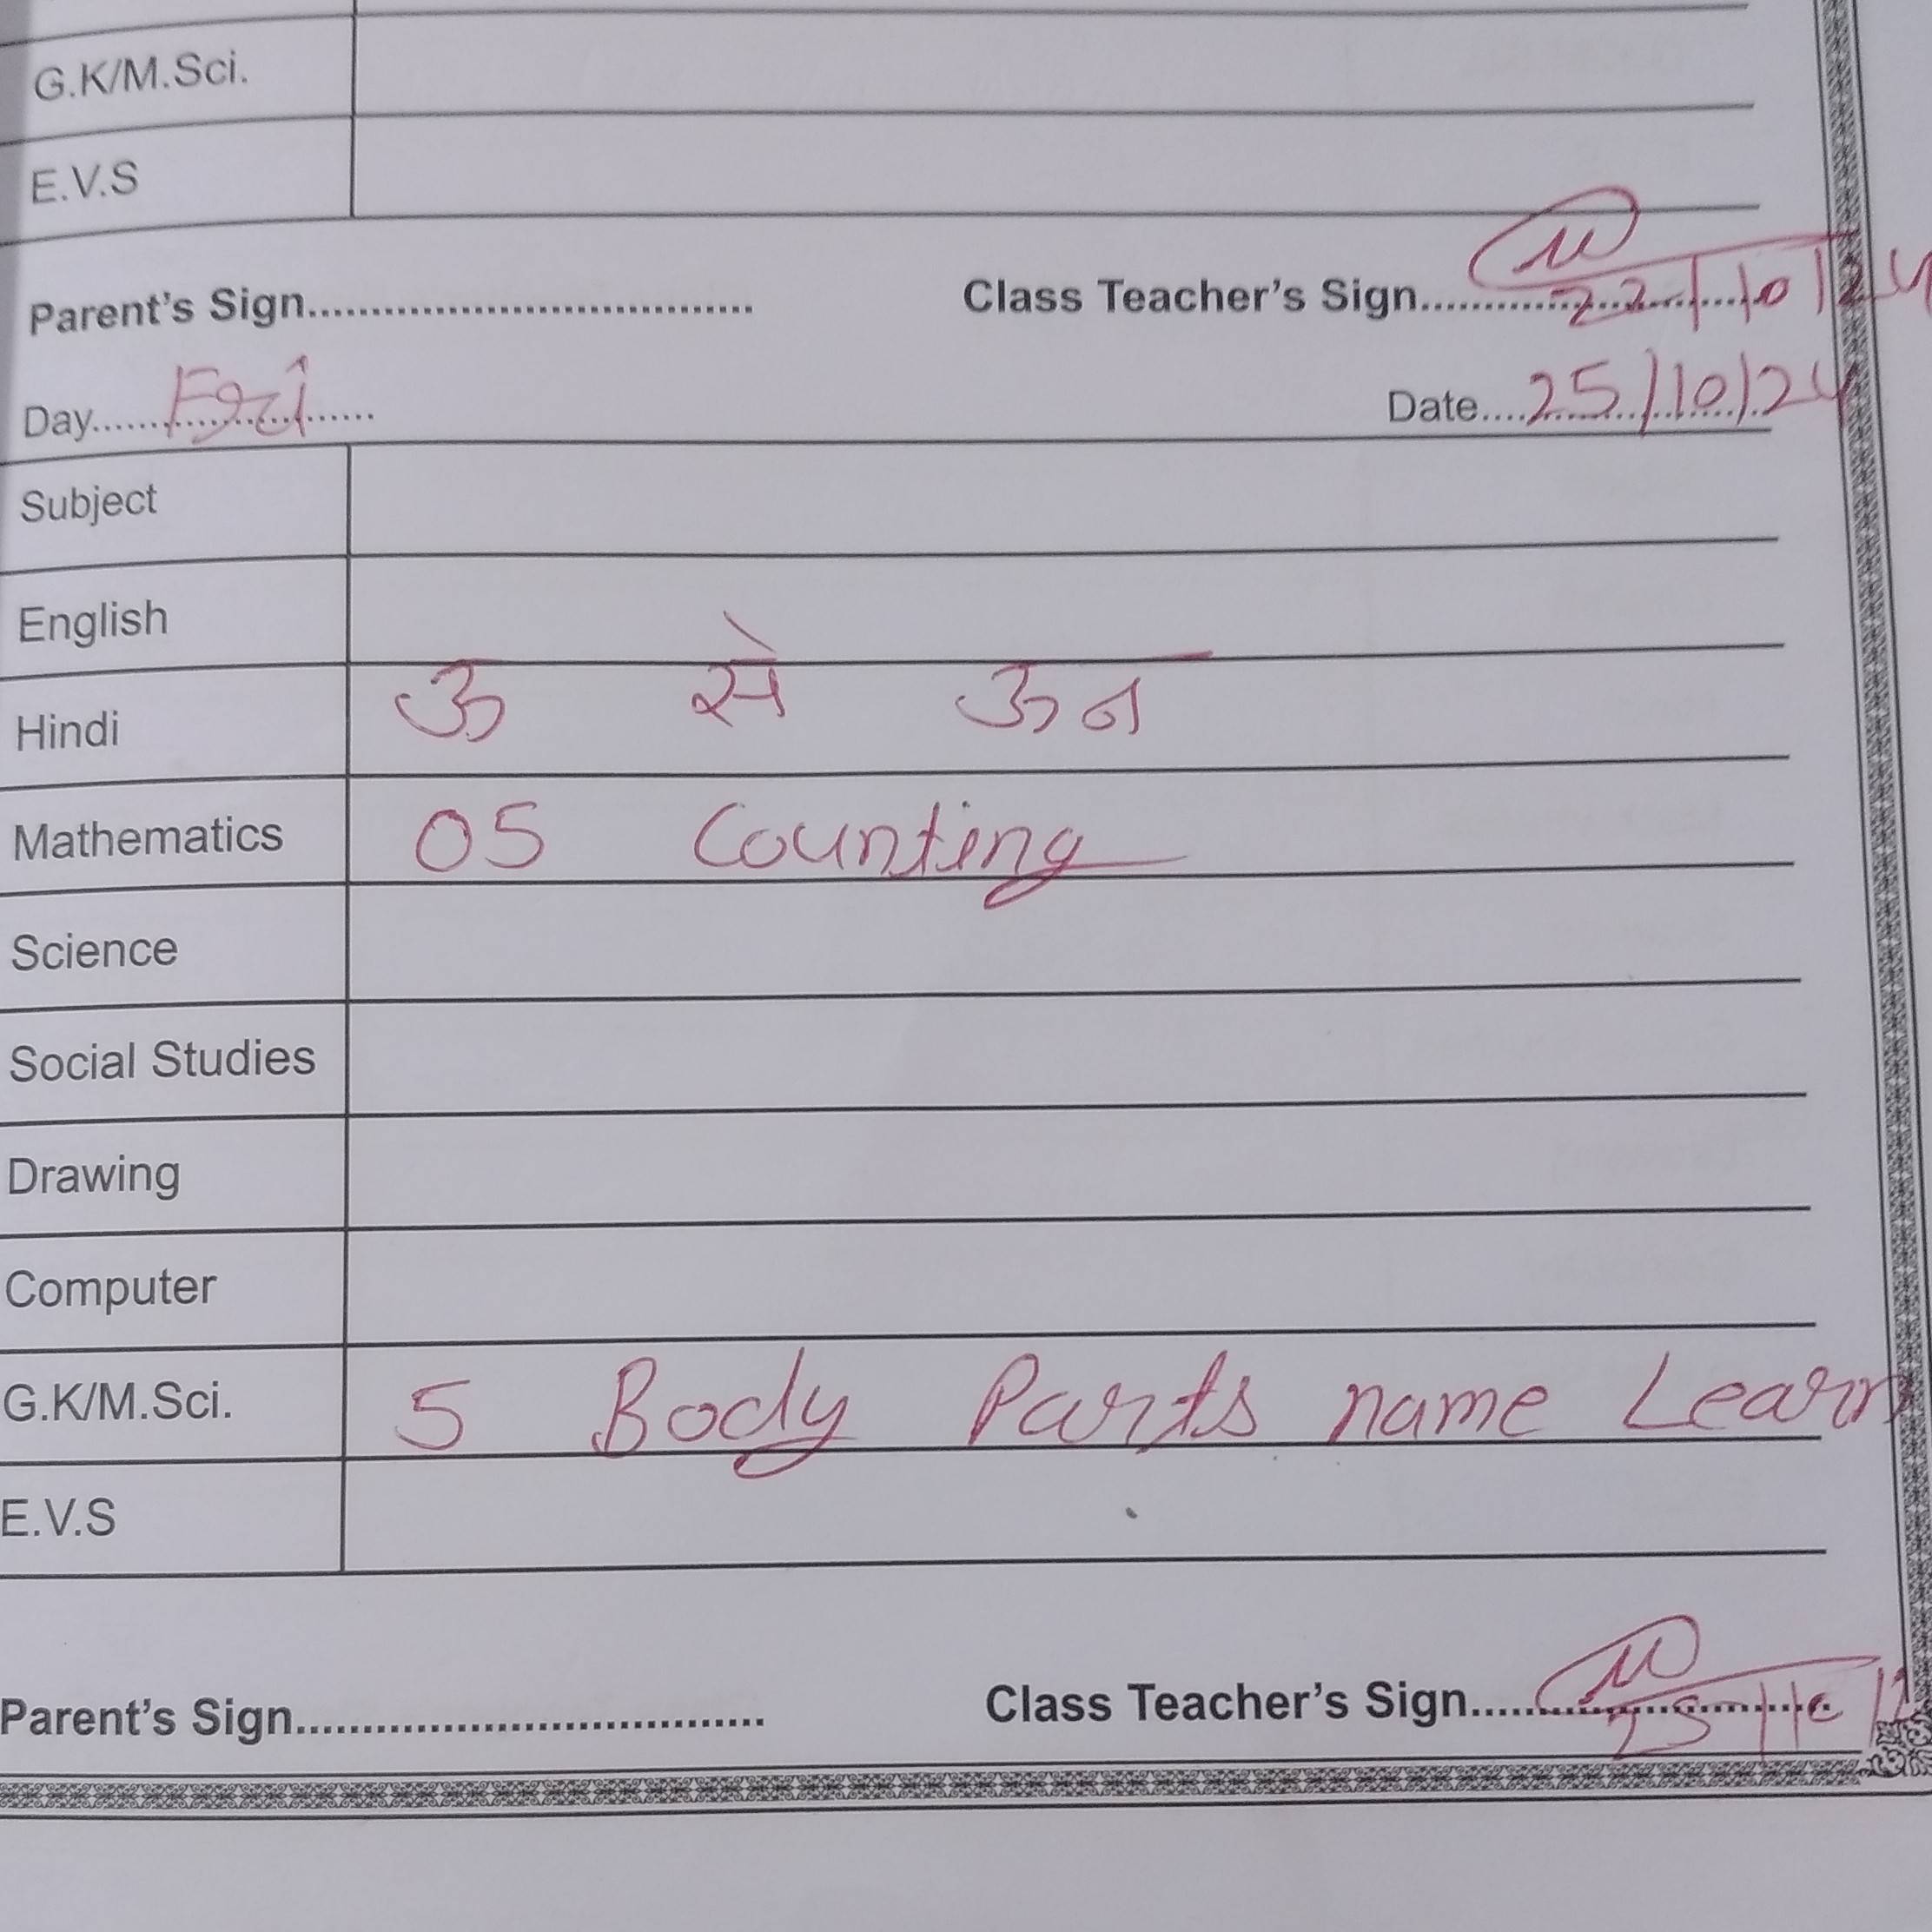 G.K/M.Sci.
E.V.S
Parent's Sign.................................. Class Teacher's Sign............ 22/10/24
Day....Fri.... Date....25/10/24
Subject
English
Hindi ऊ से ऊन
Mathematics 05 Counting
Science
Social Studies
Drawing
Computer
G.K/M.Sci. 5 Body Parts name Learn
E.V.S
Parent's Sign................................... Class Teacher's Sign............ 25/10/2